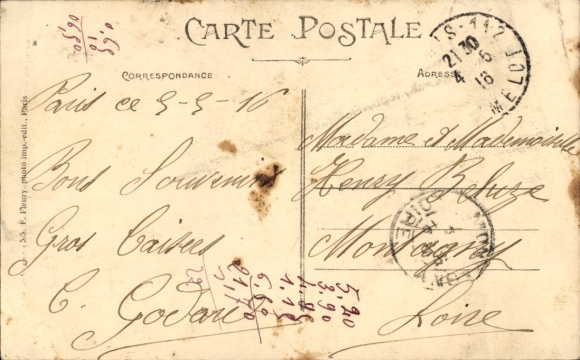 CARTE POSTALE
CORRESPONDANCE
ADRESSE
Paris ce 5-5-16
Bons Souvenirs
Gros Baisers
C. Godard
Madame et Mademoiselle
Henry Beluze
Montagny
Loire
S-112
2130
4 5
16
LOIRE
0.65
10
06,50
5.90
3.90
1.15
6.60
21.70
E. Fleury, photo imp.-edit., Paris